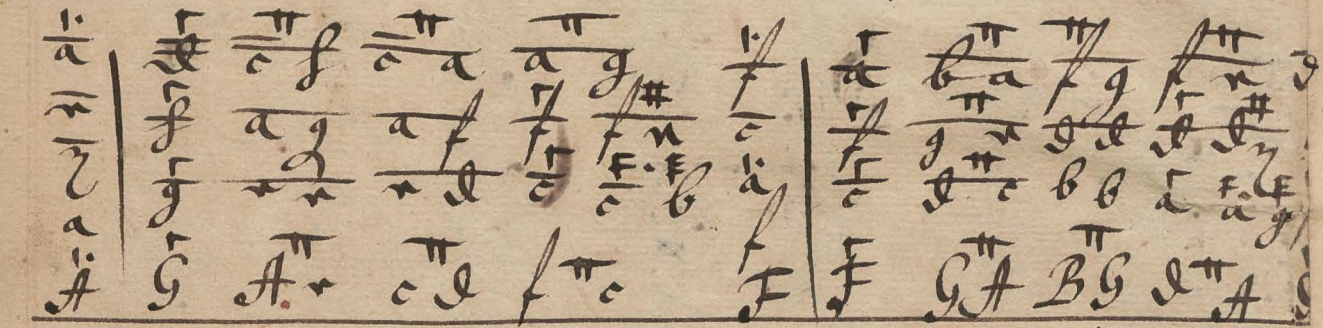 a d c f c a a g f a b a f g f e d
e f a g a f f f e c f g e d d d d
g e e e d c c b a c d c b b a a g
a f
A G A e c d f c F F G A B G d A